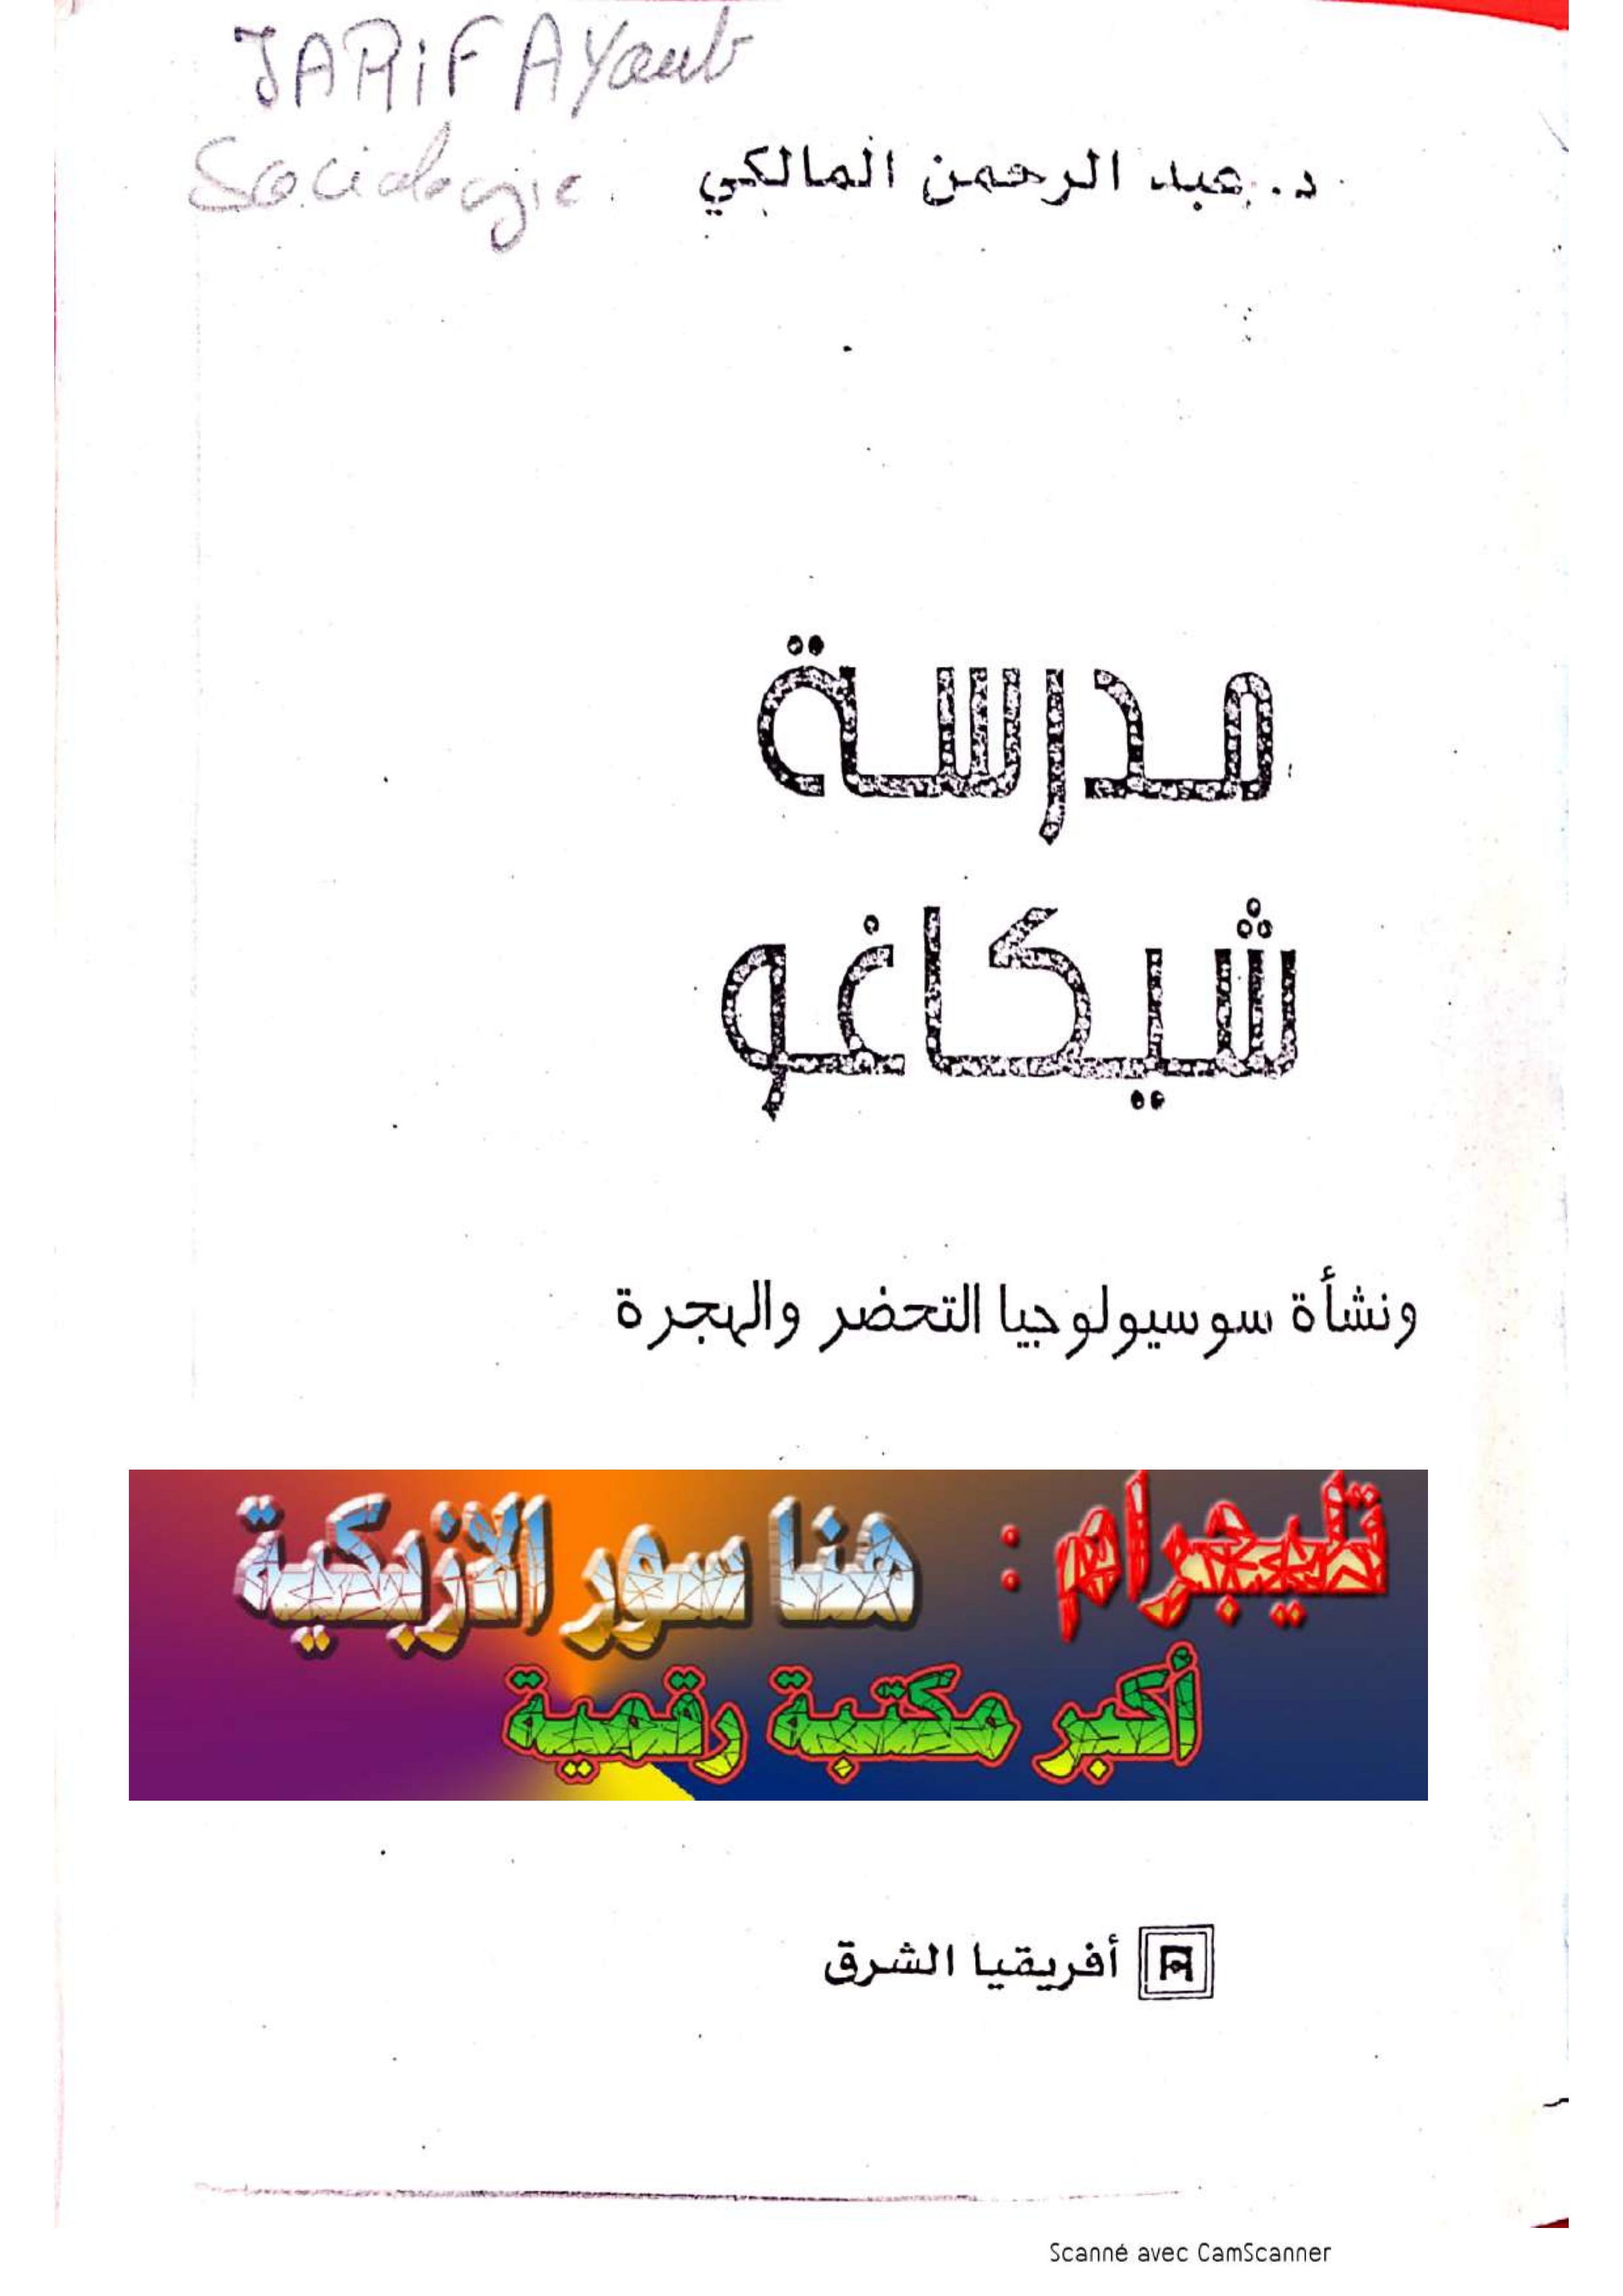 JARiF AYoub
Sociologie
د. عبد الرحمن المالكي
مدرسة
شيكاغو
ونشأة سوسيولوجيا التحضر والهجرة
تليجرام : هنا سور الازبكية
أكبر مكتبة رقمية
أفريقيا الشرق
Scanné avec CamScanner